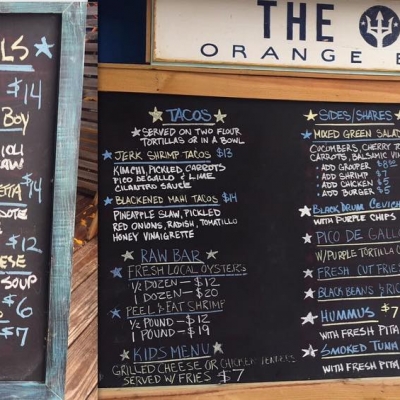 LS
$14
BOY
$14
$12
SOUP
$6
$7
THE
ORANGE
TACOS
SERVED ON TWO FLOUR
TORTILLAS OR IN A BOWL
JERK SHRIMP TACOS $13
KIMCHI, PICKLED CARROTS
PICO DE GALLO & LIME
CILANTRO SAUCE
BLACKENED MAHI TACOS $14
PINEAPPLE SLAW, PICKLED
RED ONIONS, RADISH, TOMATILLO
HONEY VINAIGRETTE
RAW BAR
FRESH LOCAL OYSTERS
½ DOZEN — $12
1 DOZEN — $20
PEEL & EAT SHRIMP
½ POUND — $12
1 POUND — $19
KIDS MENU
GRILLED CHEESE OR CHICKEN TENDERS
SERVED W/ FRIES $7
SIDES/SHARES
MIXED GREEN SALAD
CUCUMBERS, CHERRY TO
CARROTS, BALSAMIC VIN
ADD GROUPER
ADD SHRIMP $7
ADD CHICKEN
ADD BURGER $5
BLACK DRUM CEVICH
WITH PURPLE CHIPS
PICO DE GALLO
W/PURPLE TORTILLA C
FRESH CUT FRIES
BLACK BEANS & RIC
HUMMUS $7
WITH FRESH PITA
SMOKED TUNA
WITH FRESH PITA